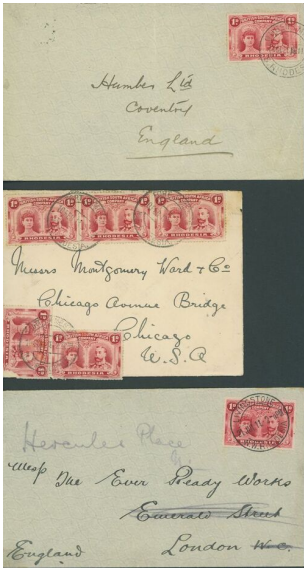 1d 1d
RHODESIA
Humber Ltd
Coventry
England
1d 1d 1d 1d 1d 1d
RHODESIA RHODESIA RHODESIA
Messrs Montgomery Ward & Co
Chicago Avenue Bridge
Chicago
U.S.A
1d 1d
RHODESIA
1d 1d
LIVINGSTONE
Hercules Place
N.
Messrs The Ever Ready Works
Emerald Street
London W.C.
England